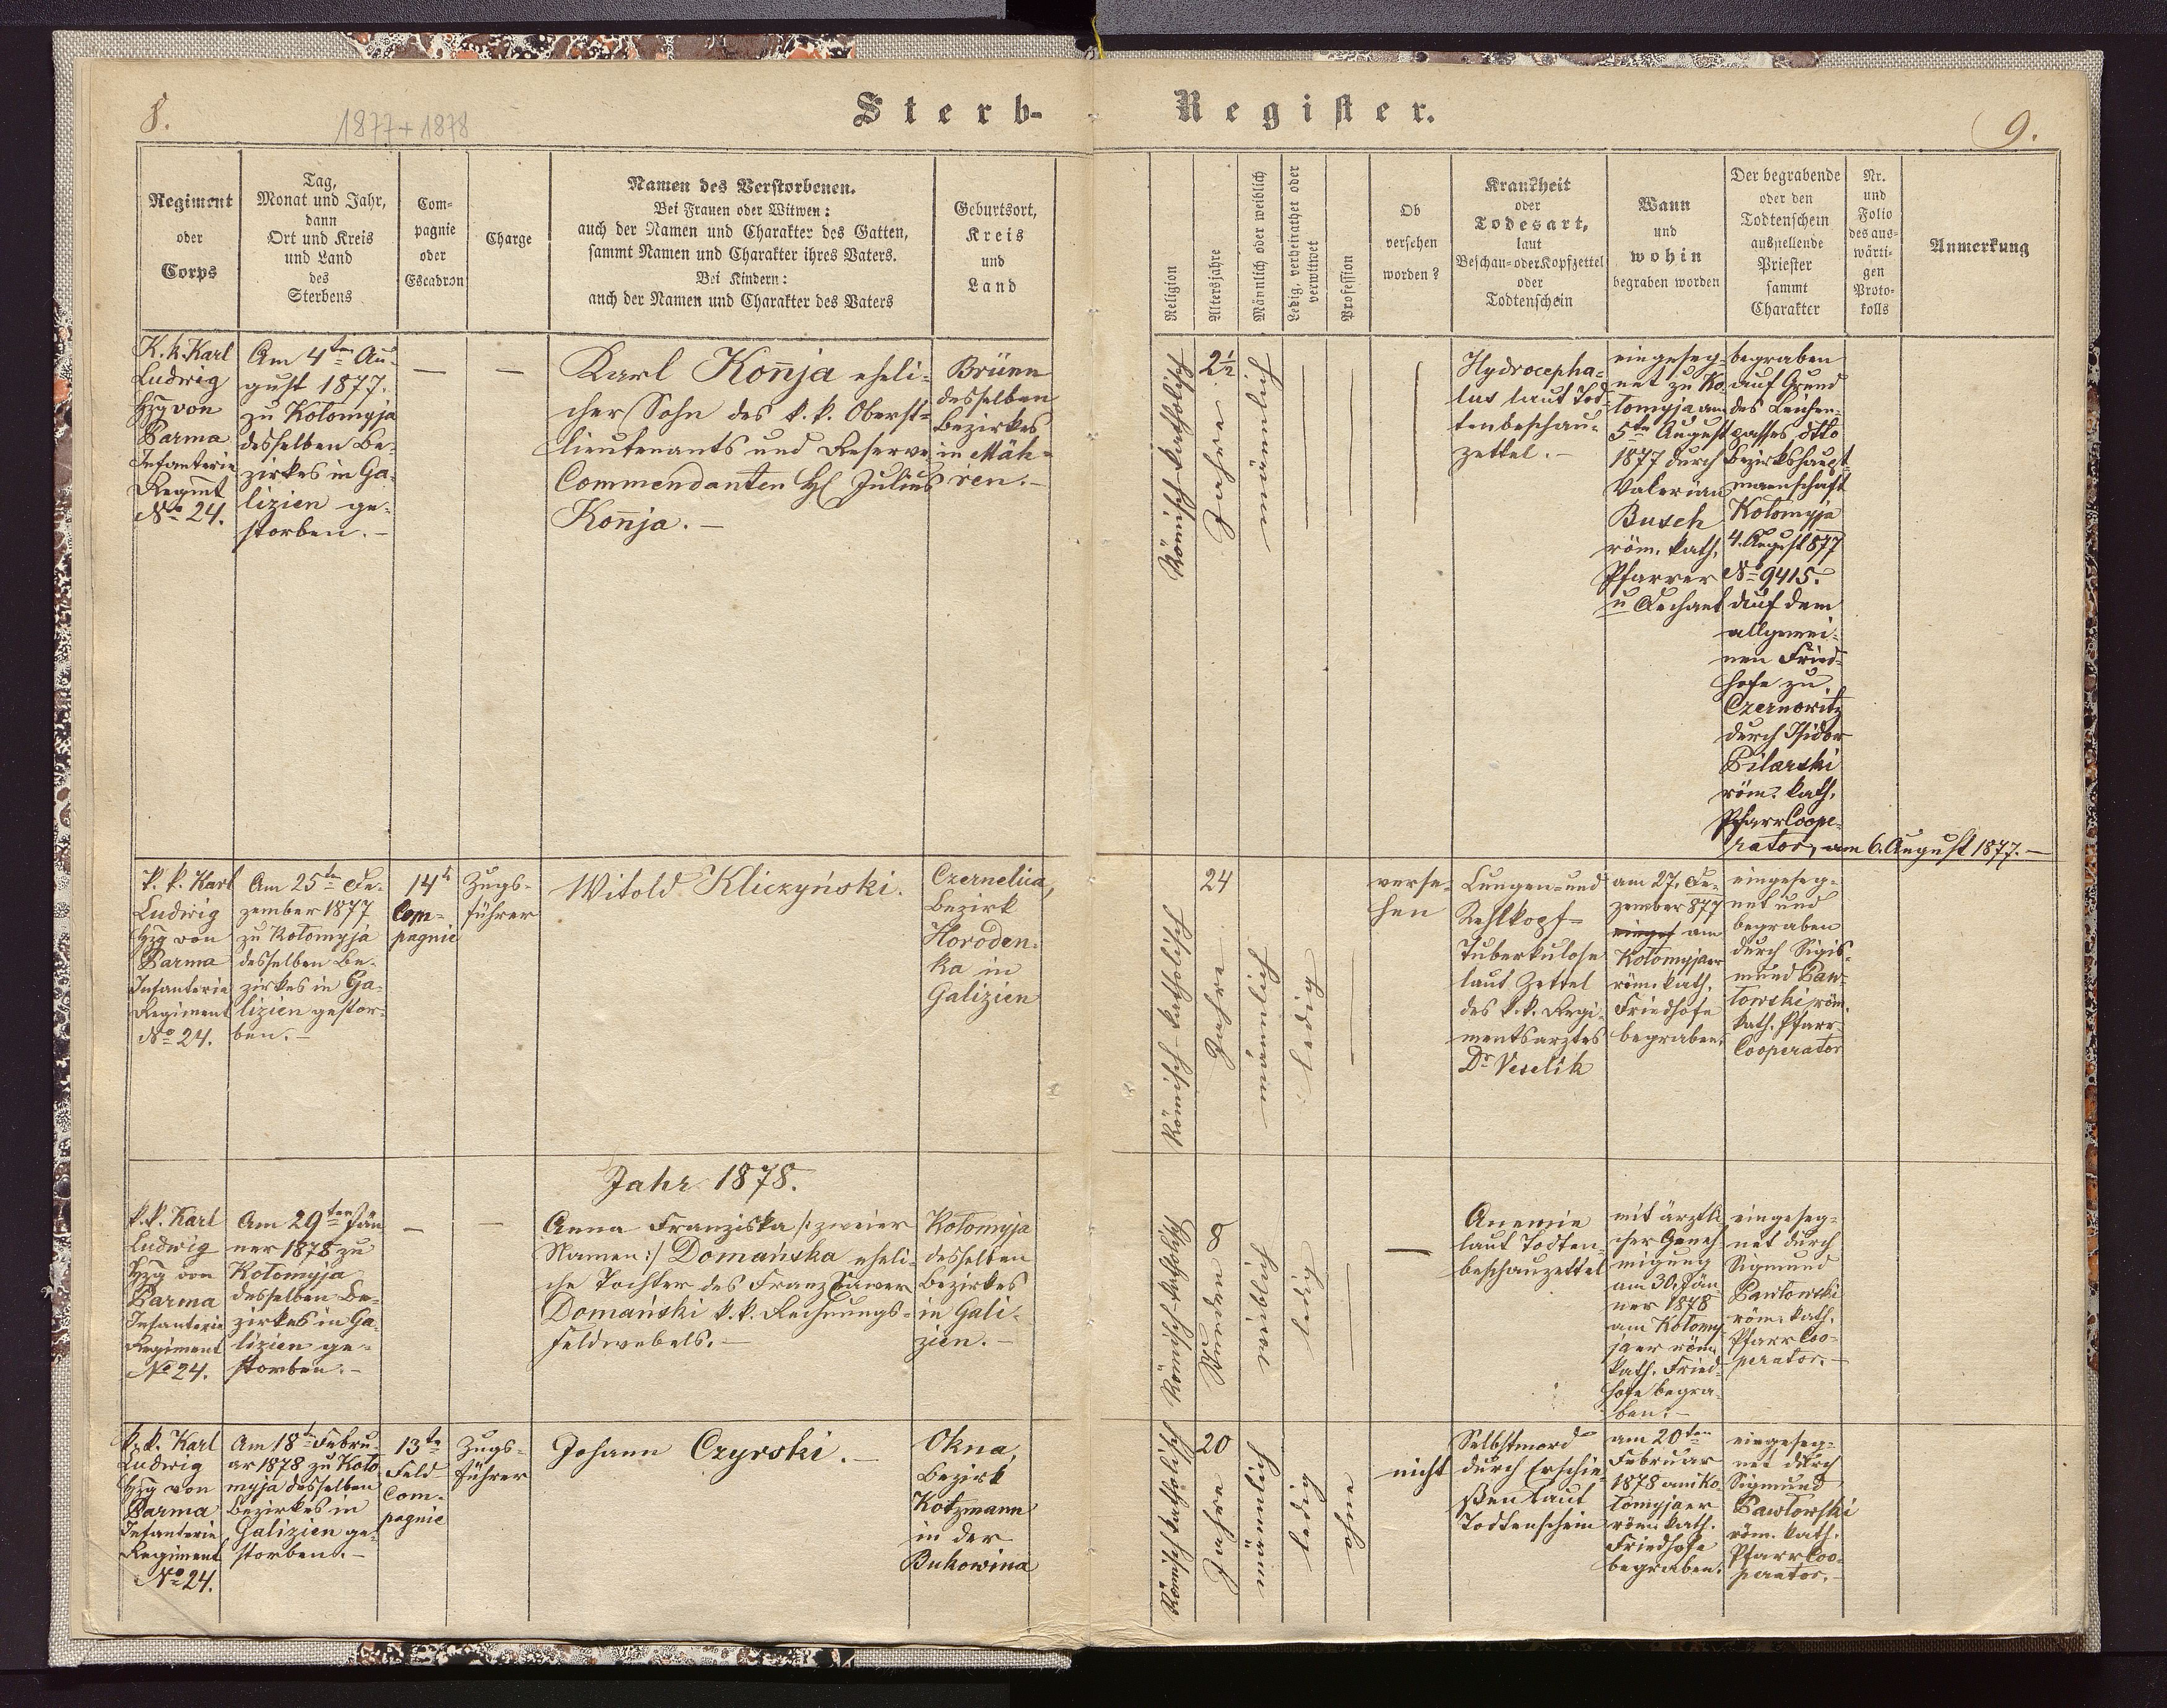 8.
1877 + 1878
Sterb-Register.
9.
Regiment
oder
Corps
Tag,
Monat und Jahr,
dann
Ort und Kreis
und Land
des
Sterbens
Com-
pagnie
oder
Escadron
Charge
Namen des Verstorbenen.
Bei Frauen oder Witwen:
auch der Namen und Charakter des Gatten,
sammt Namen und Charakter ihres Vaters.
Bei Kindern:
auch der Namen und Charakter des Vaters
Geburtsort,
Kreis
und
Land
Religion
Altersjahre
Männlich oder weiblich
Ledig, verheirathet oder
verwitwet
Profession
Ob
versehen
worden?
Krankheit
oder
Todesart,
laut
Beschau- oder Kopfzettel
oder
Todtenschein
Wann
und
wohin
begraben worden
Der begrabende
oder den
Todtenschein
ausstellende
Priester
sammt
Charakter
Nr.
und
Folio
des aus-
wärti-
gen
Proto-
kolls
Anmerkung
K. k. Karl
Ludwig
Hzg von
Parma
Infanterie
Regmt
No 24.
Am 4ten Au-
gust 1877.
zu Kołomyja
desselben Be-
zirkes in Ga-
lizien ge-
storben.-
—
—
Karl Konja eheli-
cher Sohn des k. k. Oberst-
lieutenants und Reserve-
Commendanten H. Julius
Konja.-
Brünn
desselben
Bezirkes
in Mäh-
ren.-
Römisch-katholisch
2½
Jahre
männlich
Hydrocepha-
lus laut Tod-
tenbeschau-
zettel.-
eingeseg-
net zu Ko-
łomyja am
5ten August
1877 durch
Valerian
Busch
röm. kath.
Pfarrer
u Dechant
begraben
auf Grund
des Leichen-
passes dtto
Bezirkshaupt-
mannschaft
Kołomyja
4. August 877
No 9415.
auf dem
allgemei-
nen Fried-
hofe zu
Czernowitz
durch Isidor
Pilarski
röm. kath.
PfarrCoope-
rator, am 6. August 1877.—
k. k. Karl
Ludwig
Hzg von
Parma
Infanterie
Regiment
No 24.
Am 25ten De-
zember 1877
zu Kołomyja
desselben Be-
zirkes in Ga-
lizien gestor-
ben.-
14te
Com-
pagnie
Zugs-
führer
Witold Kliczyński.
Czernelica,
Bezirk
Horoden-
ka in
Galizien
Römisch-katholisch
24
Jahre
männlich
ledig
verse-
hen
Lungen- und
Kehlkopf-
Tuberkulose
laut Zettel
des k.k. Regi-
mentsarztes
Dr Veselik
am 27. De-
zember 877
einges am
Kołomyjaer
röm. kath.
Friedhofe
begraben.
eingeseg-
net und
begraben
durch Sigis-
mund Paw-
łowski röm.
kath. Pfarr-
Cooperator
Jahr 1878.
k. k. Karl
Ludwig
Hzg von
Parma
Infanterie
Regiment
No 24.
Am 29ten Jän-
ner 1878 zu
Kołomyja
desselben Be-
zirkes in Ga-
lizien ge-
storben.-
—
—
Anna Franziska /: zweier
Namen :/ Domańska eheli-
che Tochter des Franz Xawer
Domański k.k. Rechnungs-
feldwebels.-
Kołomyja
desselben
Bezirkes
in Gali-
zien.-
Römisch-katholisch
8
Stunden
weiblich
ledig
—
Anemie
laut Todten-
beschauzettel
mit ärztli-
cher Geneh-
migung
am 30. Jän-
ner 1878
am Kołomy-
jaer röm.
kath. Fried-
hofe begra-
ben.-
eingeseg-
net durch
Sigmund
Pawłowski
röm. kath.
Pfarr Coo-
perator.-
k. k. Karl
Ludwig
Hzg von
Parma
Infanterie
Regiment
No 24.
Am 18ten Febru-
ar 1878 zu Koło-
myja desselben
Bezirkes in
Galizien ge-
storben.-
13te
Feld-
Com-
pagnie
Zugs-
führer
Johann Czyrski.-
Okna,
Bezirk
Kotzmann
in der
Bukowina
Römisch katholisch
20
Jahre
männlich
ledig
ohne
nicht
Selbstmord
durch Erschie-
ßen laut
Todtenschein
am 20ten
Februar
1878 am Ko-
łomyjaer
röm. kath.
Friedhofe
begraben.
eingeseg-
net durch
Sigmund
Pawłowski
röm. kath.
Pfarr Coo-
perator.-